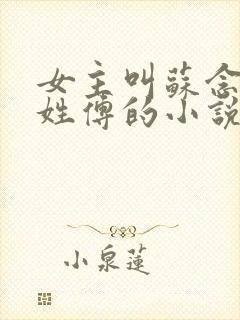 女主叫蘇念
姓傅的小說
小泉蓮